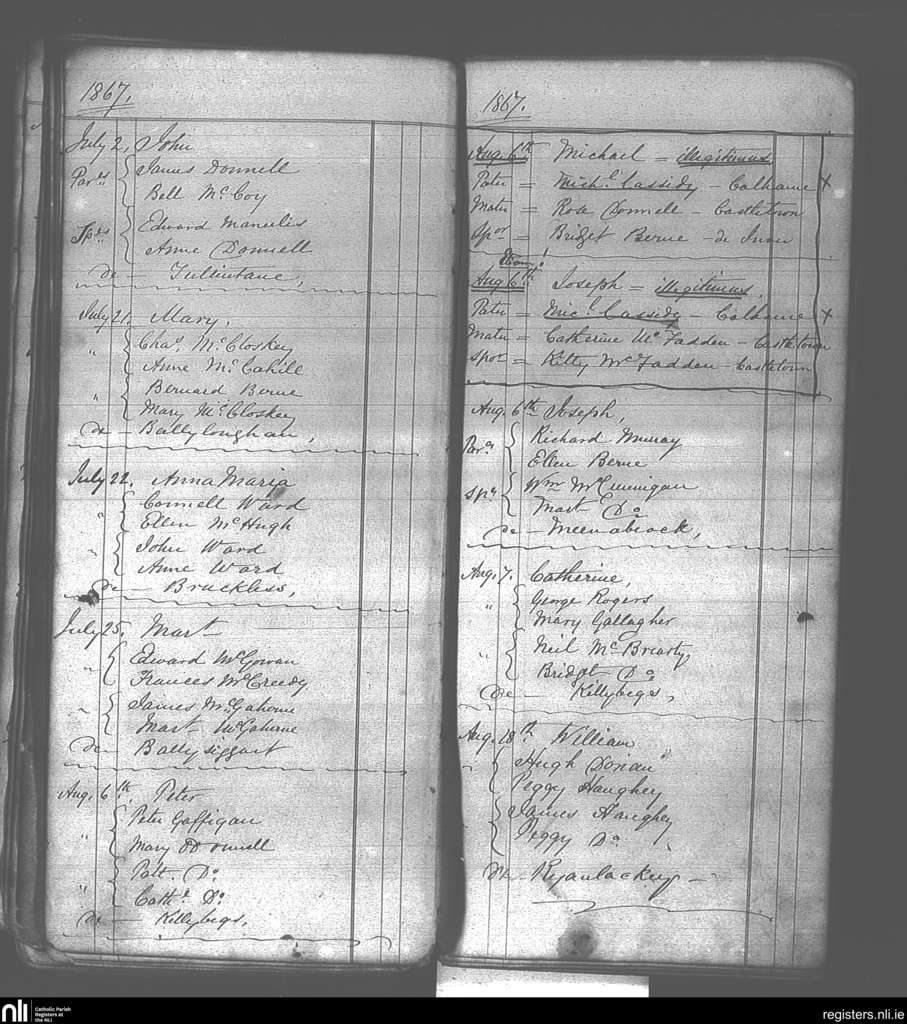 1867.
July 2, John
Par^es James Donnell
Bell Mc Coy
Sp^rs Edward Manelis
Anne Donnell
de — Tullintane,
July 21, Mary,
" Cha^s. McCloskey
Anne McCahill
" Bernard Berne
Mary McCloskey
de — Ballyloughan,
July 22. Anna Maria
" Connell Ward
Ellen McHugh
" John Ward
Anne Ward
de — Bruckless,
July 25. Mart
" Edward McGowan
Frances McCreedy
" James McGaherne
Mart McGaherne
de — Ballysiggart
Aug. 6th, Peter
" Peter Gaffigan
Mary O'Donnell
" Patt. Do.
Cath^e Do.
de — Killybegs,
1867.
Aug. 6th Michael = illegitimus
Pater = Mich^l Cassidy — Calhame X
Mater = Rose Donnell — Castletown
Spor = Bridget Berne — de Inver
Aug 6th. Joseph = illegitimus,
Pater = Mic^l. Cassidy — Calhame X
Mater = Catherine McFadden — Castletown
Spor = Kitty McFadden — Castletown
Aug. 6th Joseph,
Par^s Richard Murray
Ellen Berne
Sp^rs Wm McCunnigan
Mart Do
de — Meenabrock,
Aug. 7. Catherine,
" George Rogers
Mary Gallagher
" Neil McBrearty
Bridget Do
de — Killybegs,
Aug. 18th. William
Hugh Donan
Peggy Haughey
James Haughey
Peggy Do.
de — Ryanlackey —
nli Catholic Parish
Registers at
the NLI
registers.nli.ie